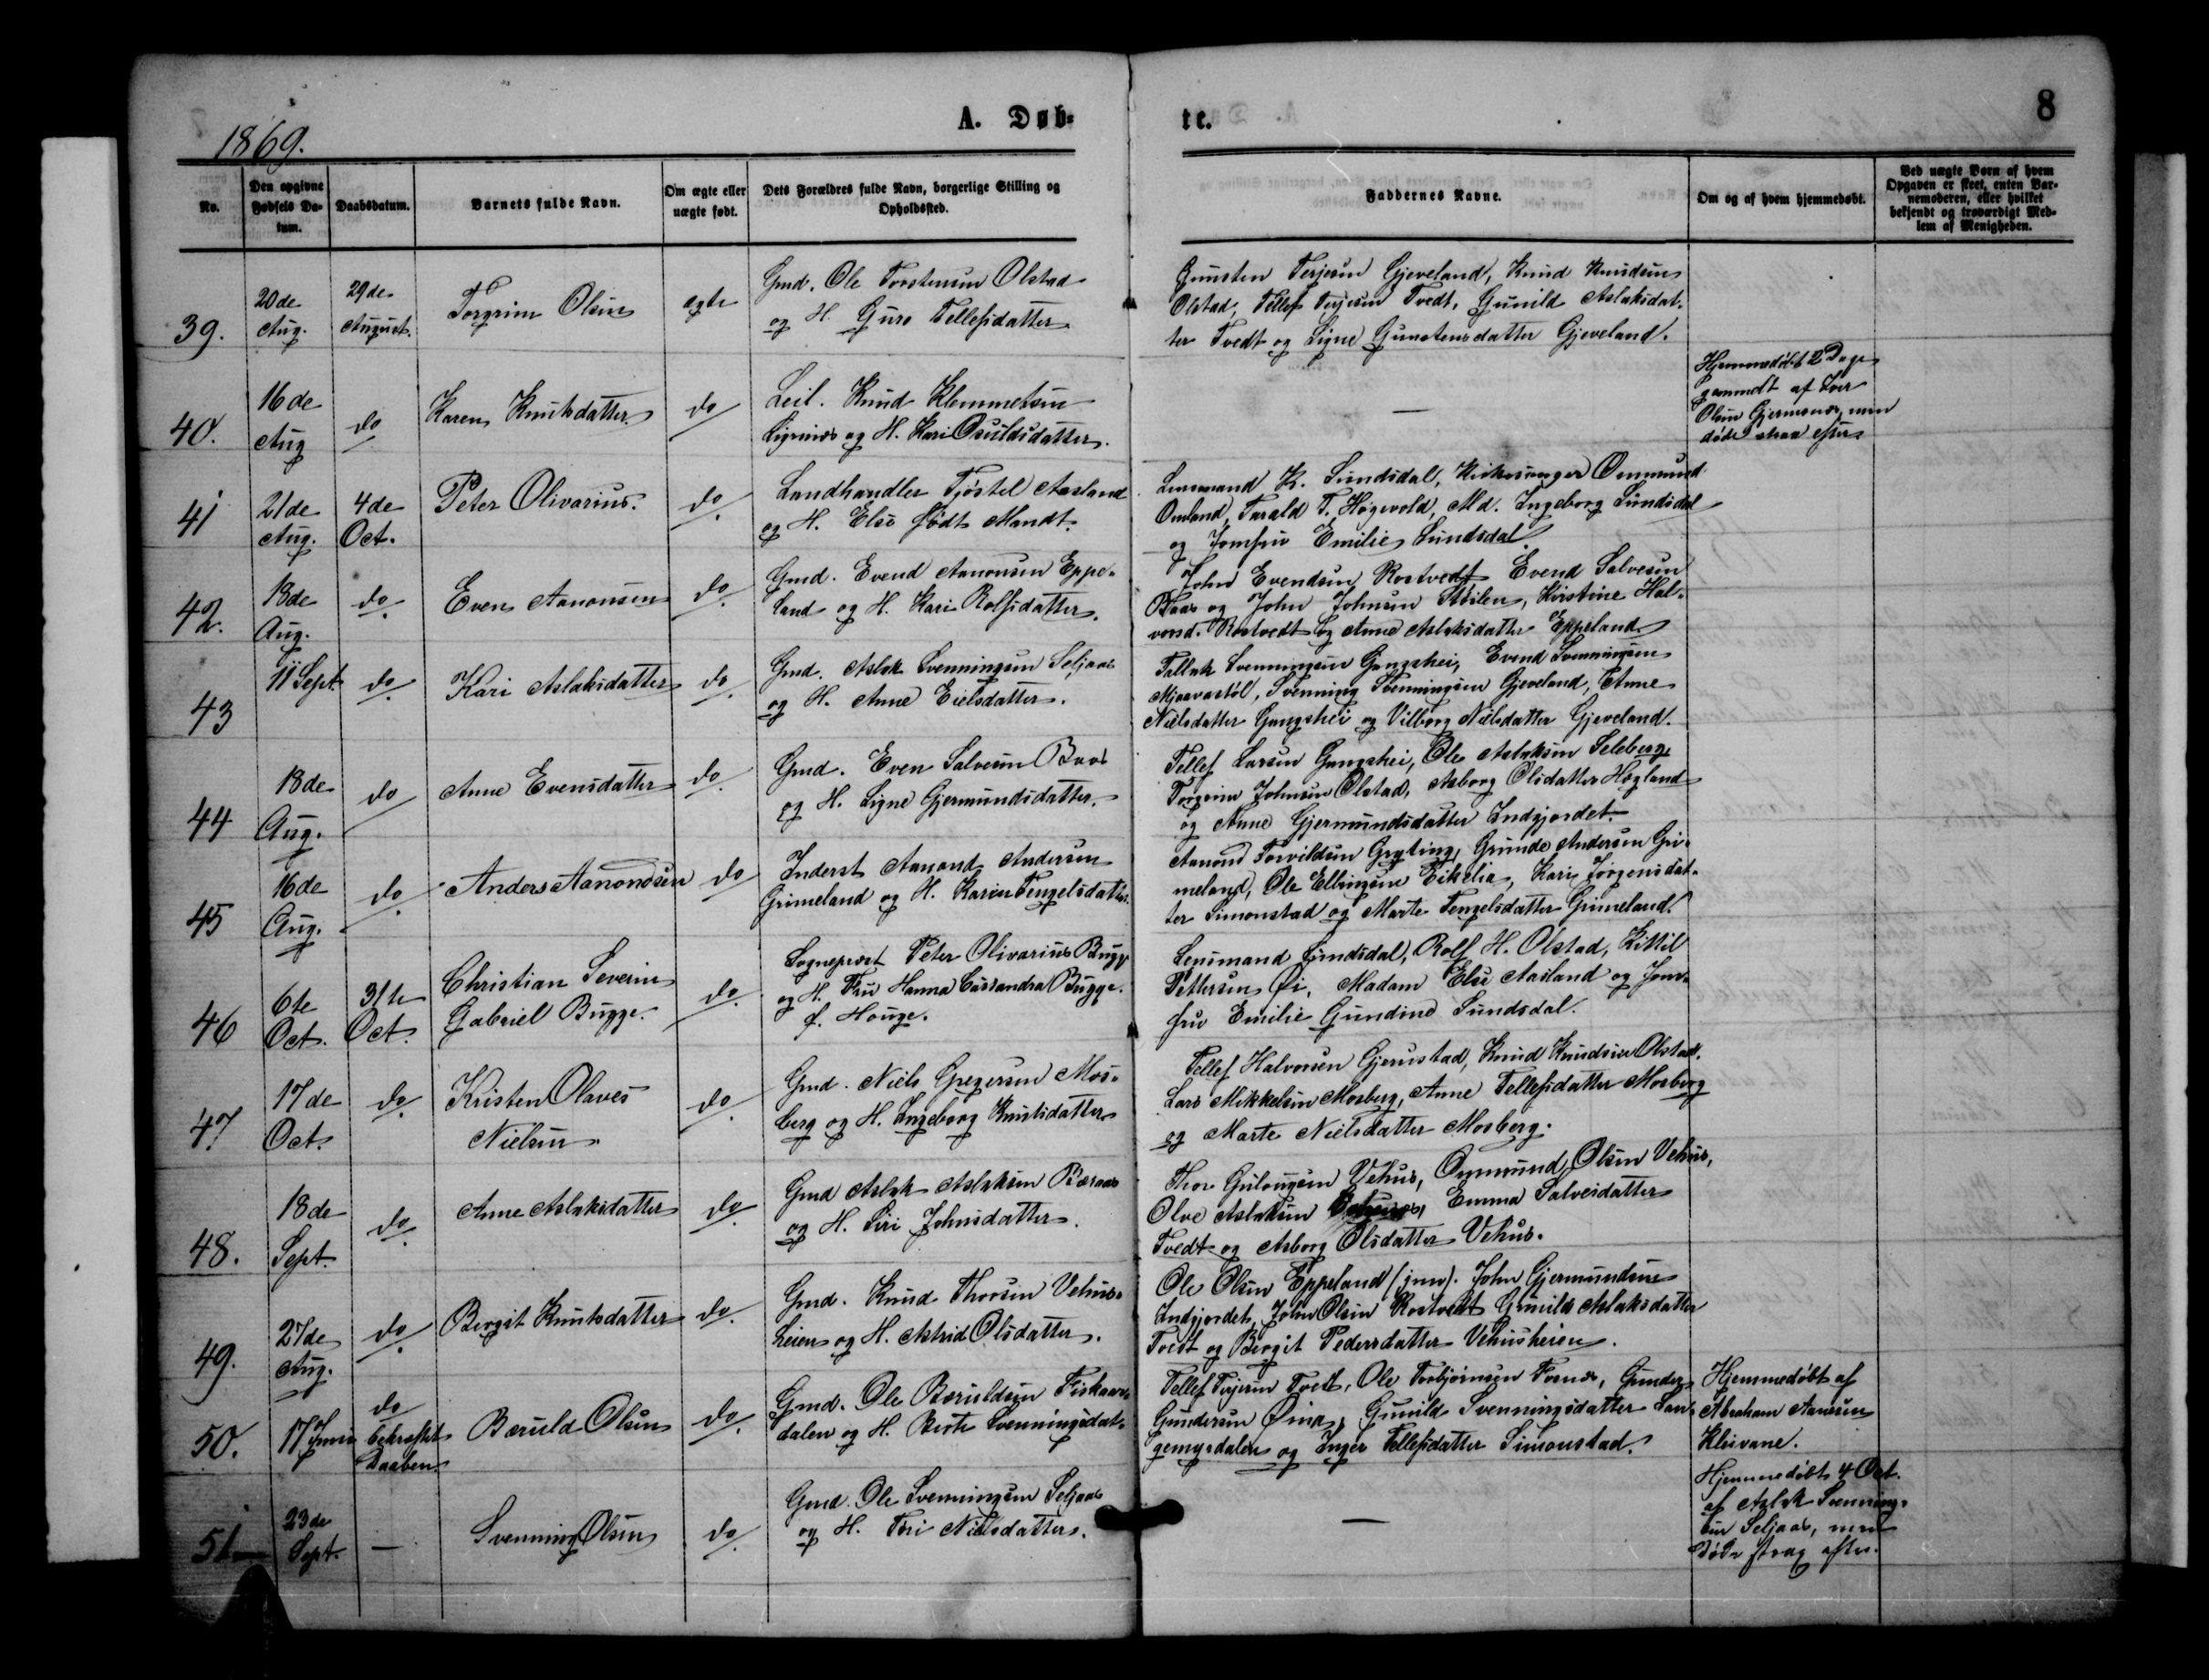 1869.
A. Døb-
te.
8
No.
Den opgivne Fødsels Da-
tum.
Daabsdatum.
Barnets fulde Navn.
Om ægte eller
uægte født.
Dets Forældres fulde Navn, borgerlige Stilling og
Opholdssted.
Faddernes Navne.
Om og af hvem hjemmedøbt.
Ved uægte Børn af hvem
Opgaven er skeet, enten Bar-
nemoderen, eller hvilket
bekjendt og troværdigt Med-
lem af Menigheden.
39.
20de
Aug.
29de
August
Torgrim Olsen
ægte
Gmd. Ole Torstensen Olstad
og H. Guro Tellefsdatter
Gunsten Terjesen Gjeveland, Knud Knudsen
Olstad, Tellef Terjesen Tvedt, Gunild Aslaksdat-
ter Tvedt og Signe Gunstensdatter Gjeveland.
40.
16de
Aug
do
Karen Knutsdatter
do
Leil. Knud Klemmetsen
og H. Kari Osuldsdatter.
—
Hjemmedøbt 2 Dage
gammelt af Iver
Olsen men
døde strax efter
41
21de
Aug.
4de
Oct.
Peter Olivarius.
do
Landhandler Tjøstel Aasland
og H. Else født Mandt.
Lensmand K. Sundsdal, Kirkesanger Ommund
Omland, Tarald T. Høgevold, Md. Ingeborg Sundsdal
og Jomfru Emilie Sundsdal
42.
13de
Aug.
do
Even Aanonsen
do
Gmd. Evend Aanonsen Eppe-
land og H. Kari Rolfsdatter.
John Evendsen Rostvedt Evend Salvesen
Baas og John Johnsen Støilen, Kirstine Hal-
vorsd. Rostvedt og Anne Aslaksdatter Eppeland
43
11 Sept.
do
Kari Aslaksdatter
do
Gmd. Aslak Svenningsen Seljaas
og H. Anne Eielsdatter.
Tallak Svenningsen Gangshei, Evend Svenningsen
Mjaavastøl, Svenning Svenningsen Gjeveland, Anne
Nielsdatter Gangshei og Vilborg Nielsdatter Gjeveland.
44
18de
Aug.
do
Anne Evensdatter
do
Gmd. Even Salvesen Baas
og H. Signe Gjermundsdatter.
Tellef Larsen Gangshei, Ole Aslaksen Seleberg
Torgrim Johnsen Olstad, Asborg Olsdatter Høgland
og Anne Gjermundsdatter Indgjordet.
45
16de
Aug.
do
Anders Aanondsen
do
Inderst Aanond Andersen
Grimeland og H. Karen Tengelsdatter.
Aanond Torvildsen Gryting, Grunde Andersen Gri-
meland, Ole Ellingsen Eikelia, Kari Jørgensdat-
ter Simonstad og Marte Tengelsdatter Grimeland.
46
6te
Oct.
31te
Oct.
Christian Severin
Gabriel Bugge.
do
Sognepræst Peter Olivarius Bugge
og H. Fru Hanna Cassandra Bugge.
f. Houge.
Lensmand Sundsdal, Rolf H. Olstad, Kittil
Pettersen Øi, Madam Else Aasland og Jom-
fru Emilie Gundine Sundsdal.
47
17de
Oct.
do
Kristen Olaves
Nielsen
do
Gmd. Niels Gregersen Mos-
berg og H. Ingeborg Knutsdatter
Tellef Halvorsen Gjerustad, Knud Knudsen Olstad.
Lars Mikkelsen Mosberg, Anne Tellefsdatter Mosberg
og Marte Nielsdatter Mosberg.
48.
18de
Sept.
do
Anne Aslaksdatter
do
Gmd Aslak Aslaksen Baraas
og H. Siri Johnsdatter.
Thor Gulougsen Vehus, Osmund Olsen Vehus,
Olve Aslaksen Emma Salvesdatter
Tvedt og Asborg Olsdatter Vehus.
49.
27de
Aug.
do
Bergit Knutsdatter
do.
Gmd. Knud Thorsen Vehus-
heien og H. Astrid Olsdatter.
Ole Olsen Eppeland (jun). John Gjermundsen
Indgjordet, John Olsen Rostvedt Gunild Aslaksdatter
Tvedt og Bergit Pedersdatter Vehusheien.
50.
17 Juni
do
bekræftet
Daaben
Bæruld Olsen
do
Gmd. Ole Bæruldsen Fiskaa-
dalen og H. Berte Svenningsdat-
Tellef Terjesen Tvedt, Ole Torbjørnsen Fosnæs, Gunder
Gundersen Øina, Gunild Svenningsdatter Lan-
gemyrdalen og Inger Tellefsdatter Simonstad.
Hjemmedøbt af
Abraham Aanesen
Klivane.
51
23de
Sept.
—
Svenning Olsen
do
Gmd. Ole Svenningsen Seljaas
og H. Nielsdatter.
—
Hjemmedøbt 4 Oct.
af Aslak Svenning-
sen Seljaas, men
døde strax efter.